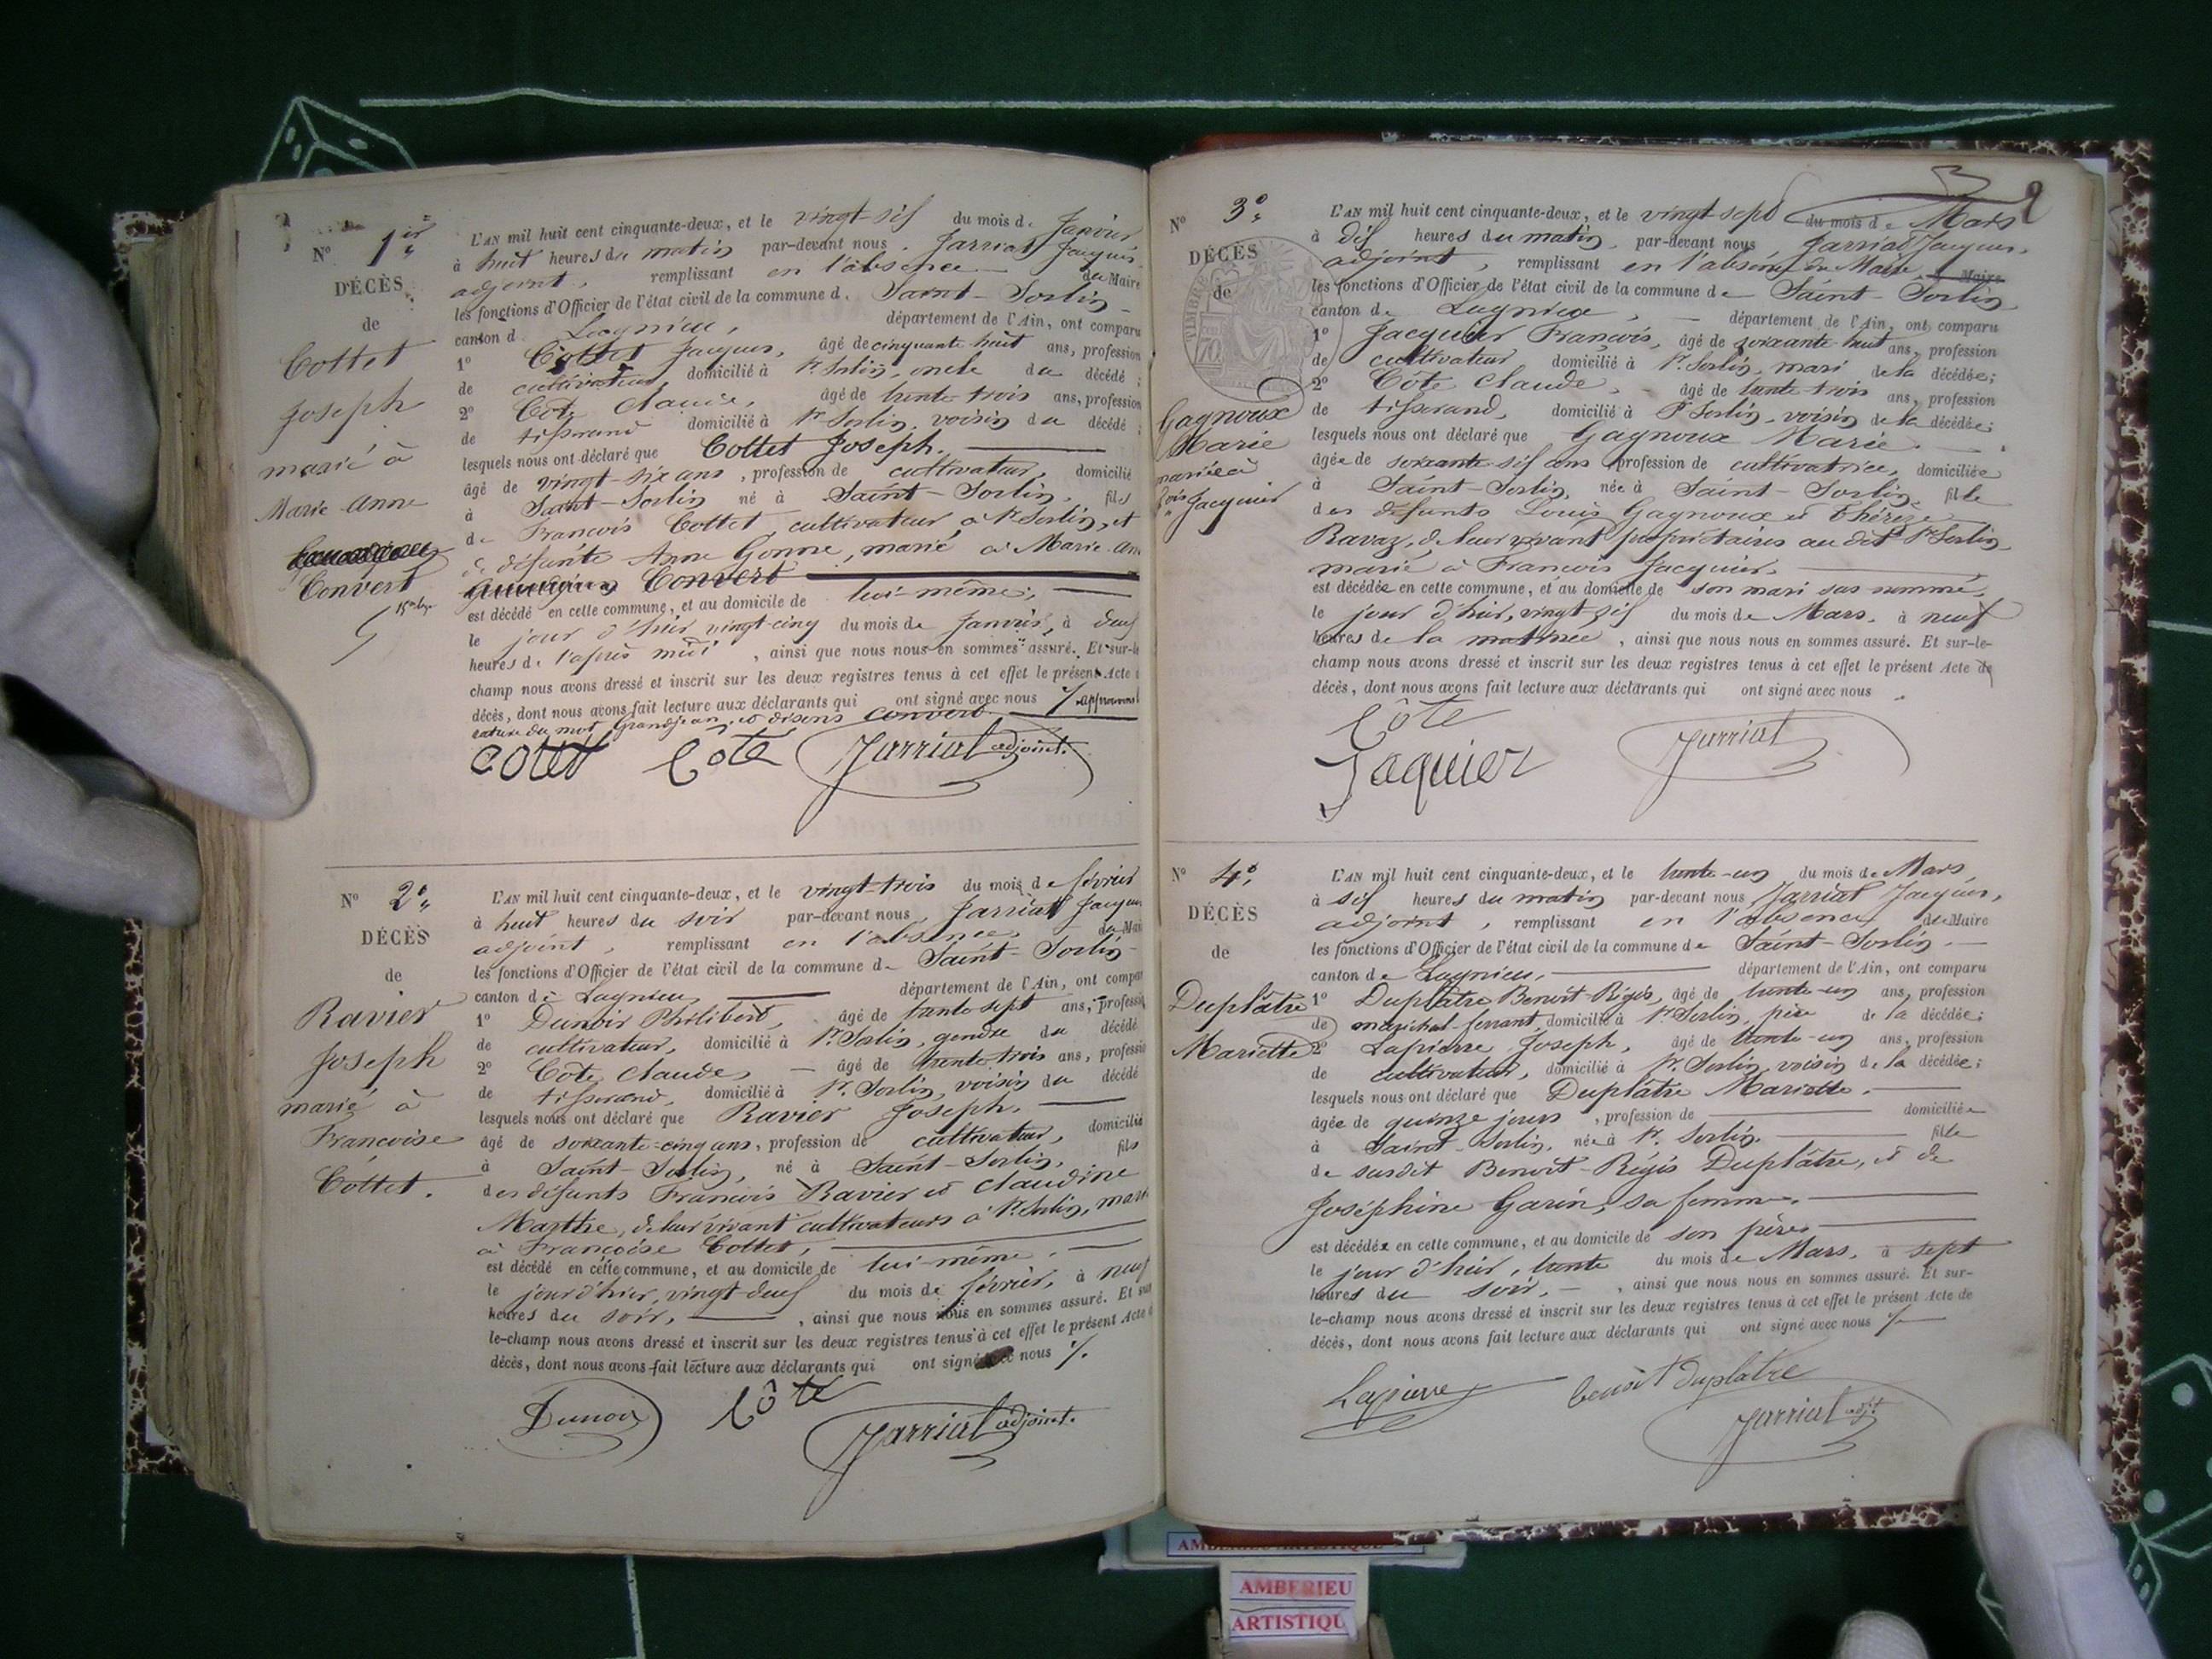 N° 1er
DÉCÈS
de
Cottet
Joseph
marié à
Marie Anne
Convert
L'AN mil huit cent cinquante-deux, et le vingt-six du mois de Janvier
à huit heures du matin par-devant nous, Jarriat Jacques
adjoint, remplissant en l'absence du Maire
les fonctions d'Officier de l'état civil de la commune de Saint-Sorlin
canton de Lagnieu, département de l'Ain, ont comparu
1° Cottet Jacques, âgé de cinquante huit ans, profession
de cultivateur domicilié à St Sorlin, oncle du décédé ;
2° Côte Claude, âgé de trente-trois ans, profession
de tisserand domicilié à St Sorlin, voisin du décédé ;
lesquels nous ont déclaré que Cottet Joseph.
âgé de vingt-six ans, profession de cultivateur, domicilié
à Saint-Sorlin né à Saint-Sorlin, fils
de François Cottet, cultivateur à St Sorlin, et
de défunte Anne Gonne, marié à Marie-Ann
Convert
est décédé en cette commune, et au domicile de lui-même,
le jour d'hier vingt-cinq du mois de Janvier, à deux
heures de l'après midi, ainsi que nous nous en sommes assuré. Et sur-le
champ nous avons dressé et inscrit sur les deux registres tenus à cet effet le présent Acte
décès, dont nous avons fait lecture aux déclarants qui ont signé avec nous /. approuvons
rature du mot Grandjean, et disons Convert.
Cotet Côte Jarriat adjoint.
N° 2°
DÉCÈS
de
Ravier
Joseph
marié à
Françoise
Cottet.
L'AN mil huit cent cinquante-deux, et le vingt-trois du mois de février
à huit heures du soir par-devant nous, Jarriat Jacques
adjoint, remplissant en l'absence, du Mai
les fonctions d'Officier de l'état civil de la commune de Saint-Sorlin
canton de Lagnieu, département de l'Ain, ont compar
1° Dunoir Philibert, âgé de trente sept ans, professi
de cultivateur, domicilié à St Sorlin, gendre du décédé
2° Côte Claude, âgé de trente-trois ans, professio
de tisserand, domicilié à St Sorlin, voisin du décédé
lesquels nous ont déclaré que Ravier Joseph.
âgé de soixante-cinq ans, profession de cultivateur, domicilié
à Saint-Sorlin, né à Saint-Sorlin, fils
des défunts François Ravier et Claudine
Marthe, de leur vivant cultivateurs à St Sorlin, mari
à Françoise Cottet,
est décédé en cette commune, et au domicile de lui-même,
le jour d'hier, vingt-deux du mois de février, à neuf
heures du soir, ainsi que nous nous en sommes assuré. Et sur
le-champ nous avons dressé et inscrit sur les deux registres tenus à cet effet le présent Acte d
décès, dont nous avons fait lecture aux déclarants qui ont signé avec nous /.
Dunoir Côte Jarriat adjoint.
N° 3°
DÉCÈS
de
TIMBRE
70
Gagnoux
Marie
mariée à
fois Jacquier
L'AN mil huit cent cinquante-deux, et le vingt-sept du mois de Mars
à dix heures du matin, par-devant nous Jarriat Jacques,
adjoint, remplissant en l'absence du Maire Maire
les fonctions d'Officier de l'état civil de la commune de Saint-Sorlin
canton de Lagnieu, département de l'Ain, ont comparu
1° Jacquier François, âgé de soixante-huit ans, profession
de cultivateur domicilié à St Sorlin, mari de la décédée ;
2° Côte Claude, âgé de trente-trois ans, profession
de tisserand, domicilié à St Sorlin, voisin de la décédée ;
lesquels nous ont déclaré que Gagnoux Marie.
âgée de soixante-six ans, profession de cultivatrice, domiciliée
à Saint-Sorlin, née à Saint-Sorlin, fille
des défunts Louis Gagnoux et Thérèze
Ravaz, de leur vivant propriétaires au dit St Sorlin,
marié à François Jacquier.
est décédée en cette commune, et au domicile de son mari sus nommé,
le jour d'hier, vingt-six du mois de Mars, à neuf
heures de la matinée, ainsi que nous nous en sommes assuré. Et sur-le-
champ nous avons dressé et inscrit sur les deux registres tenus à cet effet le présent Acte de
décès, dont nous avons fait lecture aux déclarants qui ont signé avec nous
Côte
Jaquier Jarriat
N° 4°
DÉCÈS
de
Duplâtre
Mariette
L'AN mil huit cent cinquante-deux, et le trente-un du mois de Mars
à six heures du matin par-devant nous Jarriat Jacques,
adjoint, remplissant en l'absence du Maire
les fonctions d'Officier de l'état civil de la commune de Saint-Sorlin.
canton de Lagnieu, département de l'Ain, ont comparu
1° Duplâtre Benoit-Régis, âgé de trente-un ans, profession
de maréchal-ferrant, domicilié à St Sorlin, père de la décédée ;
2° Lapierre Joseph, âgé de trente-un ans, profession
de cultivateur, domicilié à St Sorlin, voisin de la décédée ;
lesquels nous ont déclaré que Duplâtre Mariette.
âgée de quinze jours, profession de domiciliée
à Saint-Sorlin, née à St Sorlin. fille
de susdit Benoit-Régis Duplâtre, et de
Joséphine Garin, sa femme,
est décédée en cette commune, et au domicile de son père,
le jour d'hier, trente du mois de Mars, à sept
heures du soir, ainsi que nous nous en sommes assuré. Et sur-
le-champ nous avons dressé et inscrit sur les deux registres tenus à cet effet le présent Acte de
décès, dont nous avons fait lecture aux déclarants qui ont signé avec nous /.
Lapierre benoit Duplatre
Jarriat adjt
AMBERIEU ARTISTIQUE
AMBERIEU
ARTISTIQU